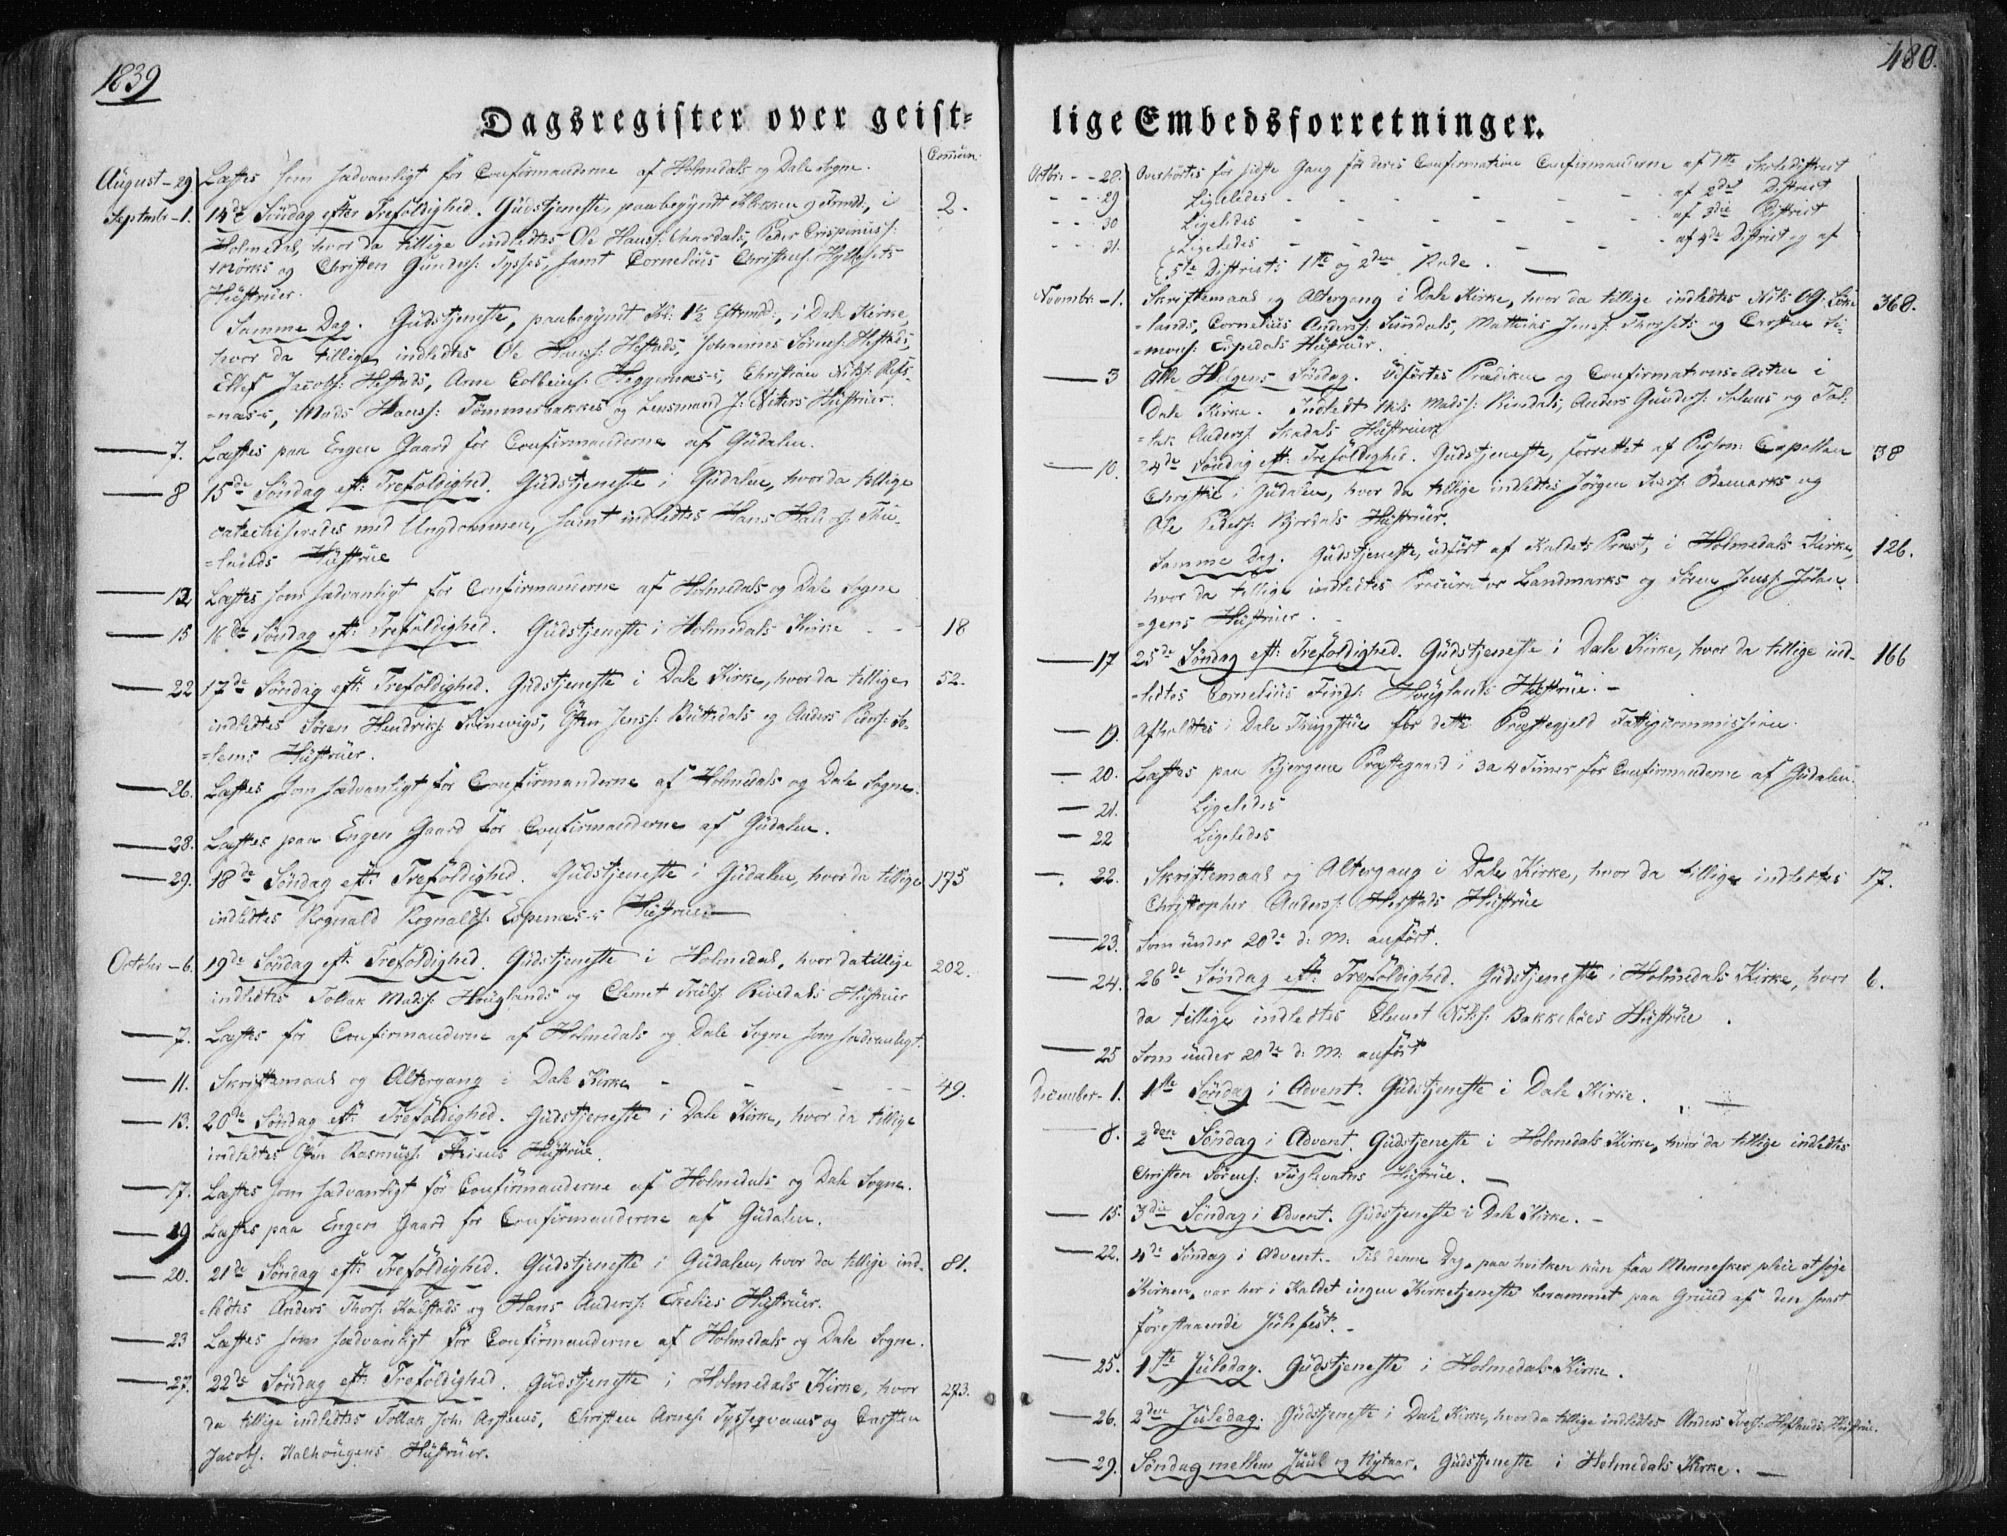 1839
Dagsregister over geist-
Comm:
August - 29 Læstes som sædvanligt for Confirmanderne af Holmedals og Dale Sogne.
Septmbr - 1. 14de Søndag efter Trefoldighed. Gudstjeneste, paabegyndt Klokken 9 Formdd:, i 2.
Holmedal, hvor da tillige indledtes Ole Hanss: Aardals, Peder Crispinuss:
Mørks og Christen Gunders: Tysses, samt Cornelius Christens:
Hustruer.
Samme Dag. Gudstjeneste, paabegyndt Kl: 1½ Eftrmdd:, i Dale Kirke,
hvor da tillige indledtes Ole Hanss: Hestads, Johannes Sørens:
Ellef Jacobs: Hestads, Arne Colbeins: Heggernæs's, Christian Nils: Refs-
=næs's, Mads Hanss: Tømmerbakkes og Lensmand J: Nitters Hustruer.
— 7. Læstes paa Engen Gaard for Confirmanderne af Gudalen.
— 8 15de Søndag eft: Trefoldighed. Gudstjeneste i Gudalen, hvor da tillige
catechiseredes med Ungdommen, samt indledtes Hans
Hustrue
— 12 Læstes som sædvanligt for Confirmanderne af Holmedals og Dale Sogne
— 15 16de Søndag eft: Trefoldighed. Gudstjeneste i Holmedals Kirke - - 18
— 22 17de Søndag eft: Trefoldighed. Gudstjeneste i Dale Kirke, hvor da tillige 52.
indledtes Søren Hendriks: Steenevigs, Østen Jenss: og Anders Peders: So-
=lems Hustruer.
— 26. Læstes som sædvanligt for Confirmanderne af Holmedals og Dale Sogne.
— 28. Læstes paa Engen Gaard for Confirmanderne af Gudalen.
— 29. 18de Søndag eft: Trefoldighed. Gudstjeneste i Gudalen, hvor da tillige 175
indledtes Rognald Rognalds: Espenæs's Hustrue —
October - 6. 19de Søndag eft: Trefoldighed. Gudstjeneste i Holmedal, hvor da tillige 202.
indledtes Tollak Madss: Houglands og Clemet Truls: Rivedals Hustruer
— 7. Læstes for Confirmanderne af Holmedals og Dale Sogne som sædvanligt.
— 11. Skriftemaal og Altergang i Dale Kirke - - - - 49.
— 13. 20de Søndag eft: Trefoldighed. Gudstjeneste i Dale Kirke, hvor da tillige
indledtes Østen Rasmuss: Hustrue.
— 17. Læstes som sædvanligt for Confirmanderne af Holmedals og Dale Sogne.
— 19 Læstes paa Engen Gaard for Confirmanderne af Gudalen.
— 20. 21de Søndag eft: Trefoldighed. Gudstjeneste i Gudalen, hvor da tillige ind- 81.
=ledtes Anders Thors: Kalstads og Hans Anderss: Hustruer.
— 23 Læstes som sædvanligt for Confirmanderne af Holmedals og Dale Sogne.
— 27. 22de Søndag eft: Trefoldighed. Gudstjeneste i Holmedals Kirke, hvor 273.
da tillige indledtes Tollak Joh: Christen Arnes: Tyssegvams og Carsten
Jacobs: Hustruer.
480.
lige Embedsforretninger.
Octbr: - - 28. Overhørtes for sidste Gang før deres Confirmation Confirmanderne af 1ste Skoledistrict
- - 29 Ligeledes - - - - - - - af 2det District
- - 30 Ligeledes - - - - - - - af 3die District
- - 31. Ligeledes - - - - - - - af 4de District og af
5te Districts 1ste og 2den Rode. —
Novmbr: - 1. Skriftemaal og Altergang i Dale Kirke, hvor da tillige indledtes Nils Og: 368.
=lands, Cornelius Anderss: Sundals, Matthias Jens: Thorsets og Carsten Si-
=mons: Espedals Hustruer.
— 3 Alle Helgens Søndag. Udførtes Prædiken og Confirmations-Acten i
Dale Kirke. Indledt Nils Madss: Rindals, Anders Gunders: og Tol-
=lak Anderss: Skadals Hustruer
— 10. 24de Søndag eft: Trefoldighed. Gudstjeneste, forrettet af Person: Capellan 38
Christie i Gudalen, hvor da tillige indledtes Jørgen Ødemarks og
Ole Peders: Kjordals Hustruer.
Samme Dag. Gudstjeneste, udført af Kaldets Præst, i Holmedals Kirke, 126.
hvor da tillige indledtes Procurator Landmarks og Søren Jenss:
=gens Hustruer.
— 17 25de Søndag eft: Trefoldighed. Gudstjeneste i Dale Kirke, hvor da tillige ind- 166
=ledtes Cornelius Finds: Houglands Hustrue. -
— 19. Afholdtes i Dale Thingstue for dette Præstegjeld Fattigcommission.
— 20. Læstes paa Bjergene Præstegaard i 3 a 4 Timer for Confirmanderne af Gudalen.
— 21. Ligeledes
— 22 Ligeledes
— 22. Skriftemaal og Altergang i Dale Kirke, hvor da tillige indledtes 17.
Christopher Anderss: Herstads Hustrue
— 23. Som under 20de d: M: anført.
— 24. 26de Søndag eft: Trefoldighed. Gudstjeneste i Holmedals Kirke, hvor 6.
da tillige indledtes Clemet Nils: Bakkebøes Hustrue.
— 25 Som under 20de d: M: anført
December - 1. 1ste Søndag i Advent. Gudstjeneste i Dale Kirke. —
— 8. 2den Søndag i Advent. Gudstjeneste i Holmedals Kirke, hvor da tillige indledtes
Christen Sørens: Fuglevatns Hustrue. —
— 15. 3die Søndag i Advent. Gudstjeneste i Dale Kirke. -
— 22. 4de Søndag i Advent. Til denne Dag, paa hvilken kun faa Mennesker pleie at søge
Kirken, var her i Kaldet ingen Kirketjeneste berammet paa Grund af den snart
forestaaende Julefest. -
— 25. 1ste Juledag. Gudstjeneste i Holmedals Kirke.
— 26. 2den Juledag. Gudstjeneste i Dale Kirke, hvor da tillige indledtes Anders Ivers: Hustrue.
— 29. Søndag mellem Juul og Nytaar. Gudstjeneste i Holmedals Kirke. —